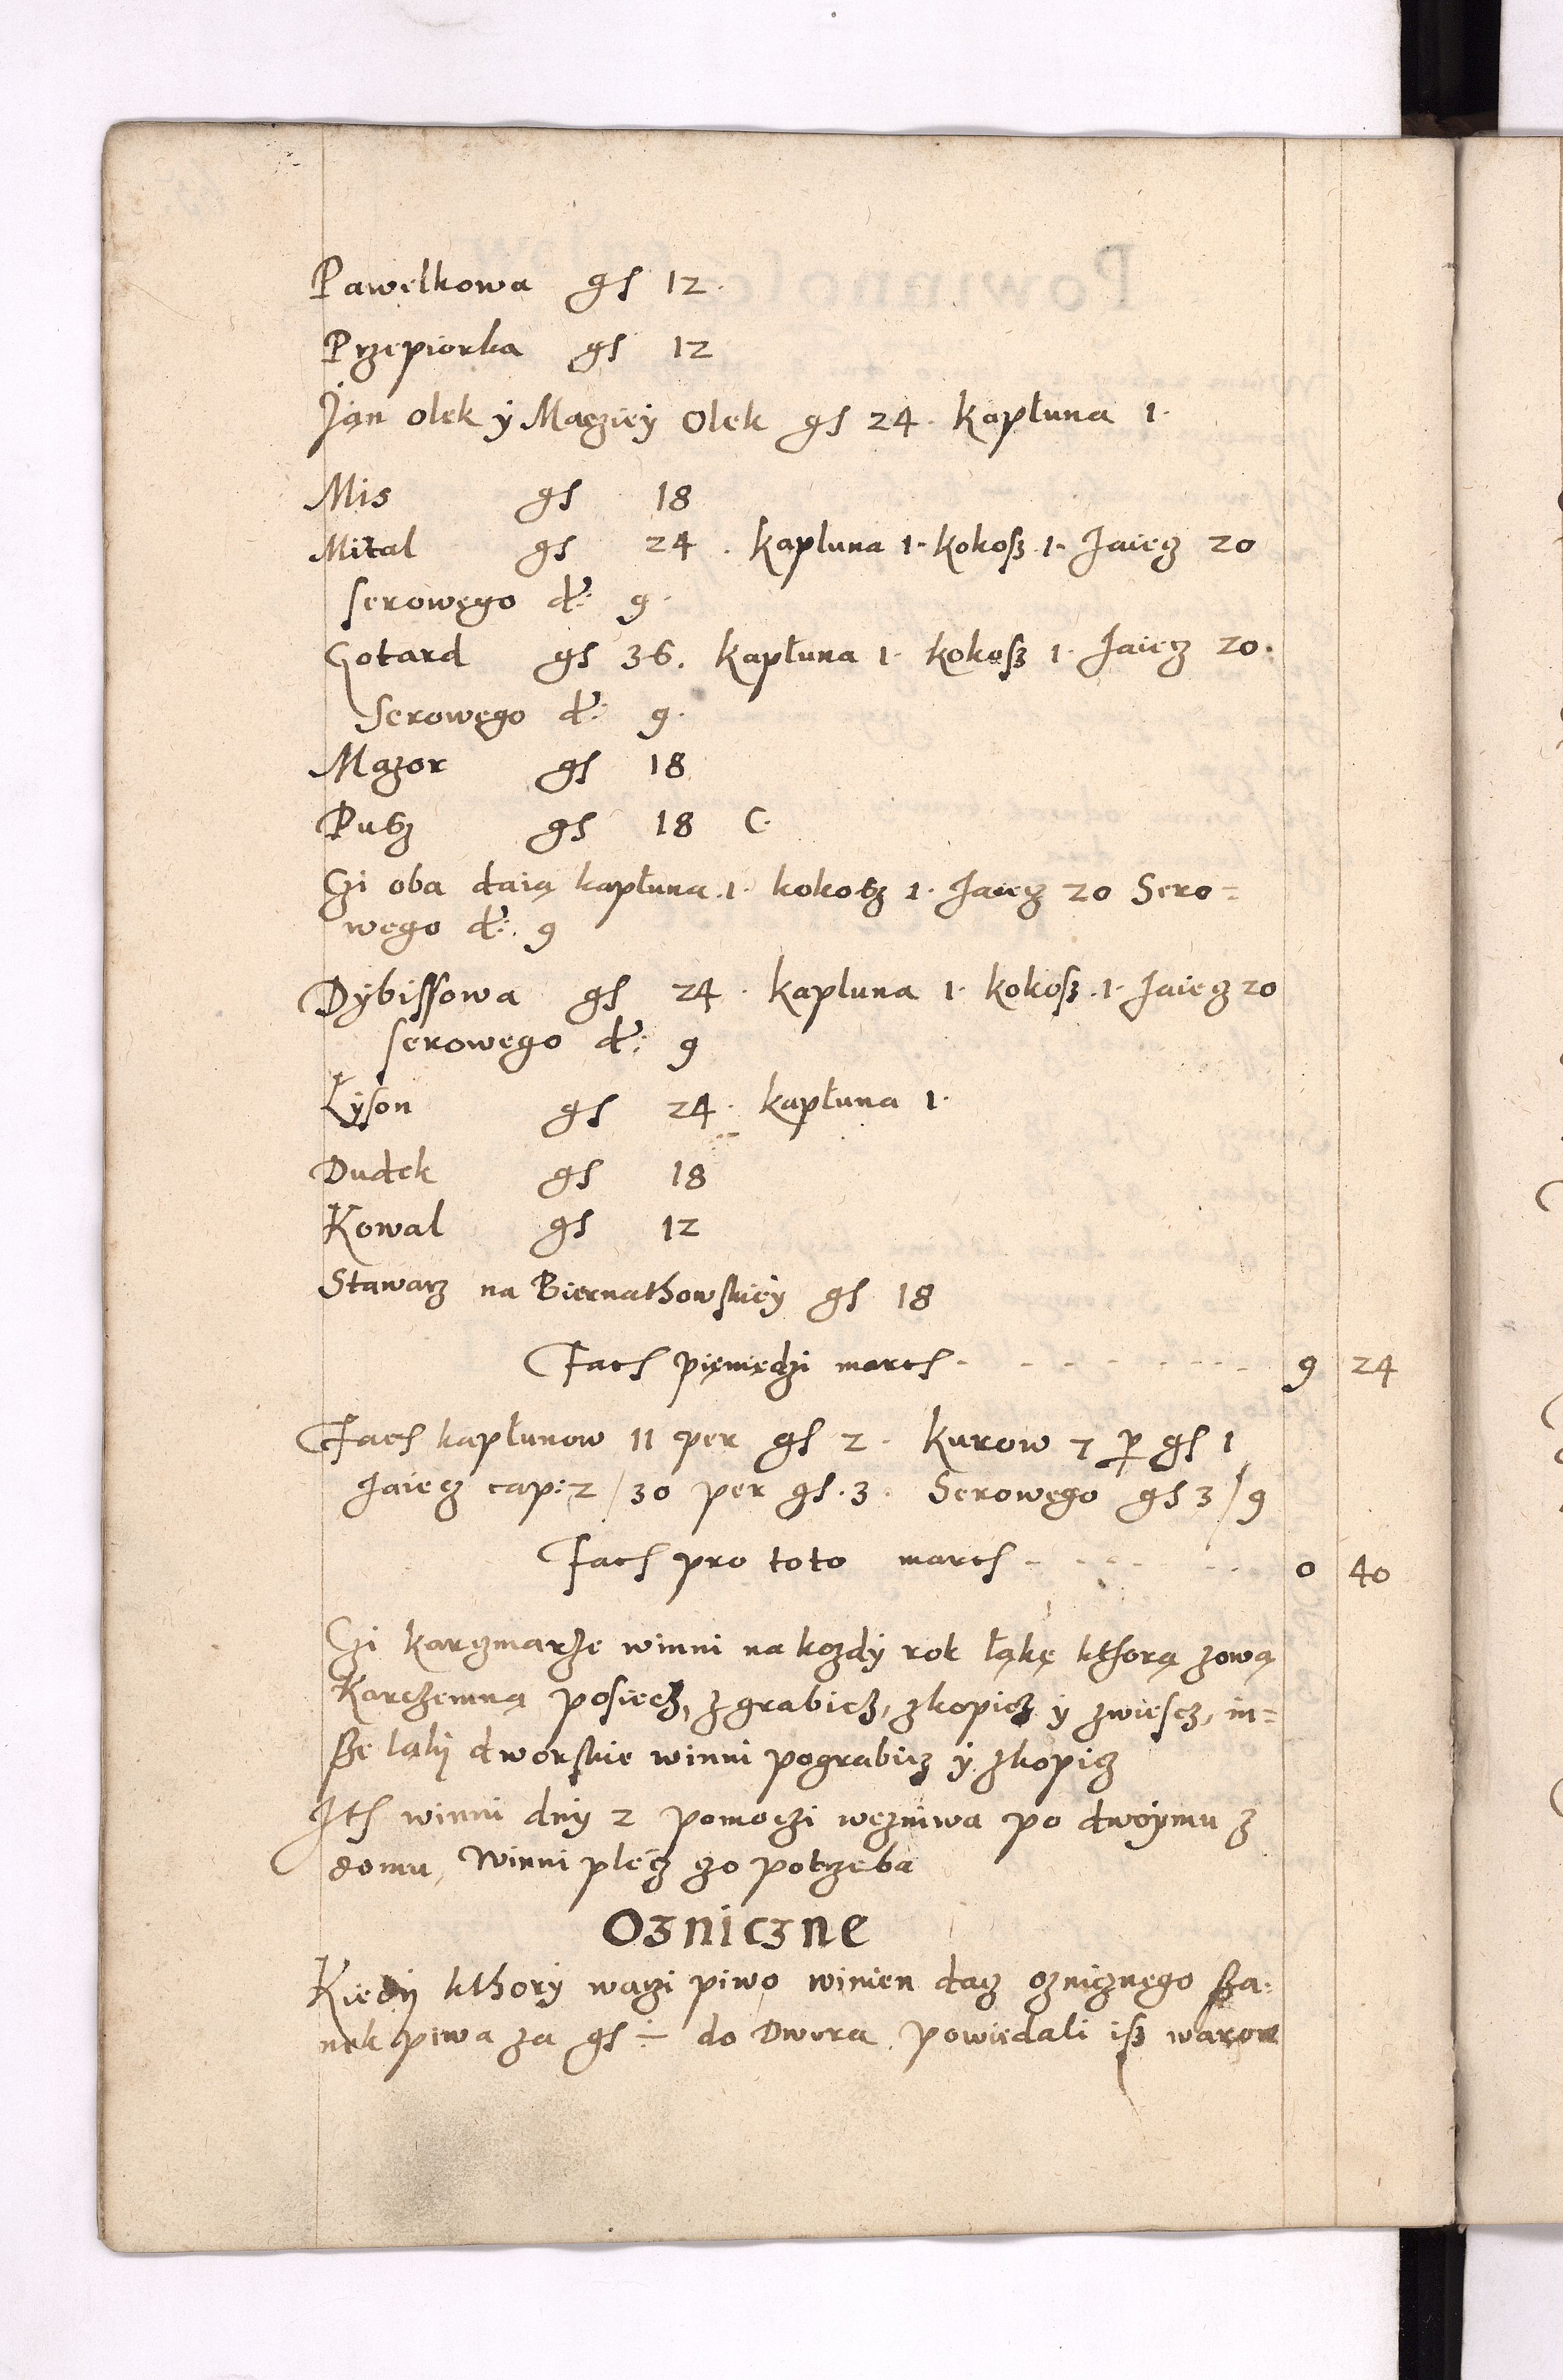 Pawelkowa gs 12.
Przepiorka gs 12
Jan olek ÿ Maczieÿ Olek gs 24. kapłuna 1.
Mis gs 18
Mital gs 24. kapluna 1. kokosz 1. Jaiecz 20
serowęgo d: 9.
Gotard gs 36. kapłuna 1. kokosz 1. Jaiecz 20.
Serowęgo d: 9.
Mazor gs 18
Pusz gs 18 C.
Czi oba daią kapłuna 1. kokosz 1. Jaiecz 20 Sero=
wego d: 9
Dÿbissowa gs 24. kapluna 1. kokosz 1. Jaiecz 20
serowego d: 9
Łÿson gs 24. kapłuna 1.
Dudek gs 18
Kowal gs 12
Stawarz na Biernathowskieÿ gs 18
Facs pięniędzi marcs 9 24
Facs kapłunow 11 per gs 2. kurow 7 p gs 1
Jaiecz cap: 2/30 per gs. 3. Serowęgo gs 3/9
Facs pro toto marcs 0 40
Czi karczmarze winni na kozdÿ rok łąkę kthorą zową
Karczemną posiecz, zgrabicz, zkopicz ÿ zwiescz, in=
sze łąki dworskie winni pograbicz ÿ zkopicz
Its winni dnÿ 2 pomoczi wezniwa po dwoÿmu z
domu, Winni plecz czo potrzeba
Ozniczne
Kiedÿ kthorÿ warzi piwo winien dacz oznicznęgo sza=
nek piwa za gs ÷ do Dwora powiedali isz warow